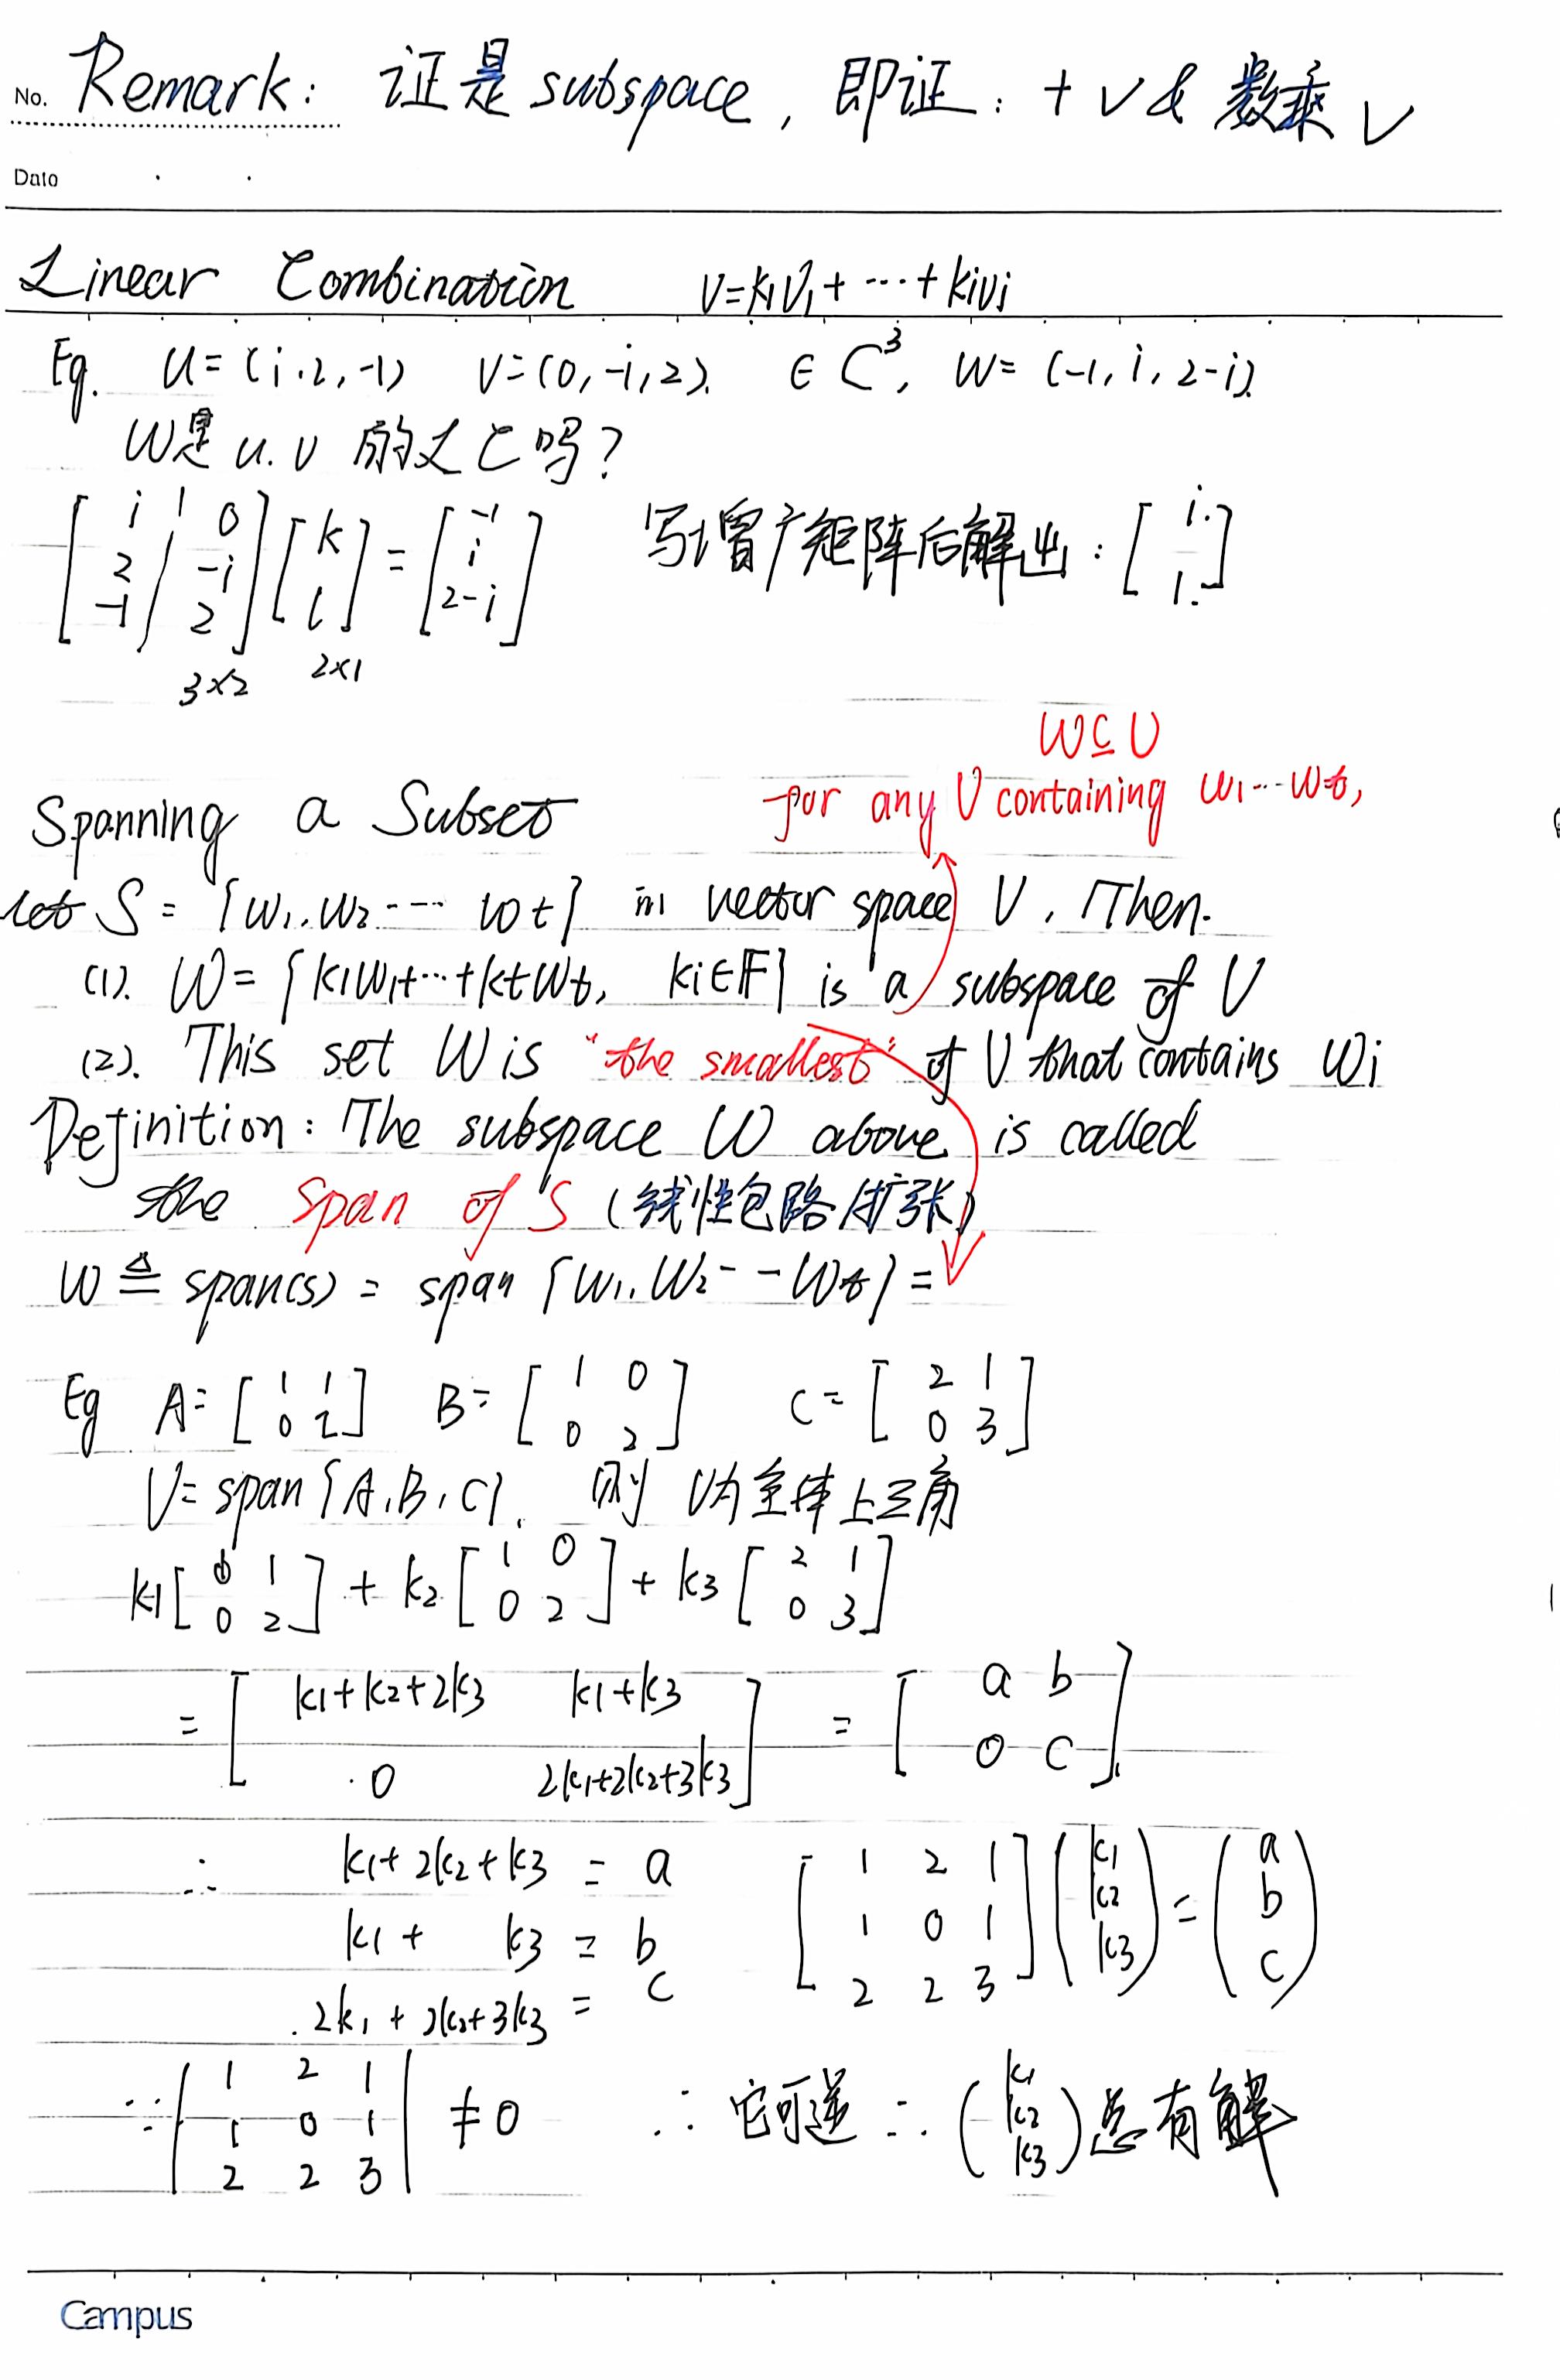 No. Remark: 证是 subspace, 即证: + √ & 数乘 √
Date
Linear Combination V=k1V1+ ⋯ + kivi
Eg. U=(i.2,-1) V=(0,-i,2). ∈ C^3, W=(-1,i,2-i).
W是 u.v 的 L C 吗?
[i 0; 2 -i; -1 2] [k; l] = [-1; i; 2-i] 写增广矩阵后解出: [i.; 1.]
3×2 2×1
W⊆V
Spanning a Subset for any V containing w1⋯wt,
let S = {w1..w2 --- wt} in vector space V. Then.
(1). W = {k1w1+⋯+ktwt, ki∈F} is a subspace of V
(2). This set W is "the smallest" of V that contains wi
Definition: The subspace W above is called
the span of S (线性包络/扩张)
W ≜ span(s) = span {w1..W2 - - Wt} =
Eg A= [1 1; 0 2] B= [1 0; 0 2] C= [2 1; 0 3]
V= span {A,B,C}. 则 V为全体上三角
k1 [0 1; 0 2] + k2 [1 0; 0 2] + k3 [2 1; 0 3]
= [k1+k2+2k3 k1+k3; 0 2k1+2k2+3k3] = [a b; 0 c]
∴ k1+2k2+k3 = a [1 2 1; 1 0 1; 2 2 3] (k1; k2; k3) = (a; b; c)
k1+ k3 = b
2k1+2k2+3k3 = c
∵ |1 2 1; 1 0 1; 2 2 3| ≠0 ∴ 它可逆 ∴ (k1; k2; k3) 总有解
Campus